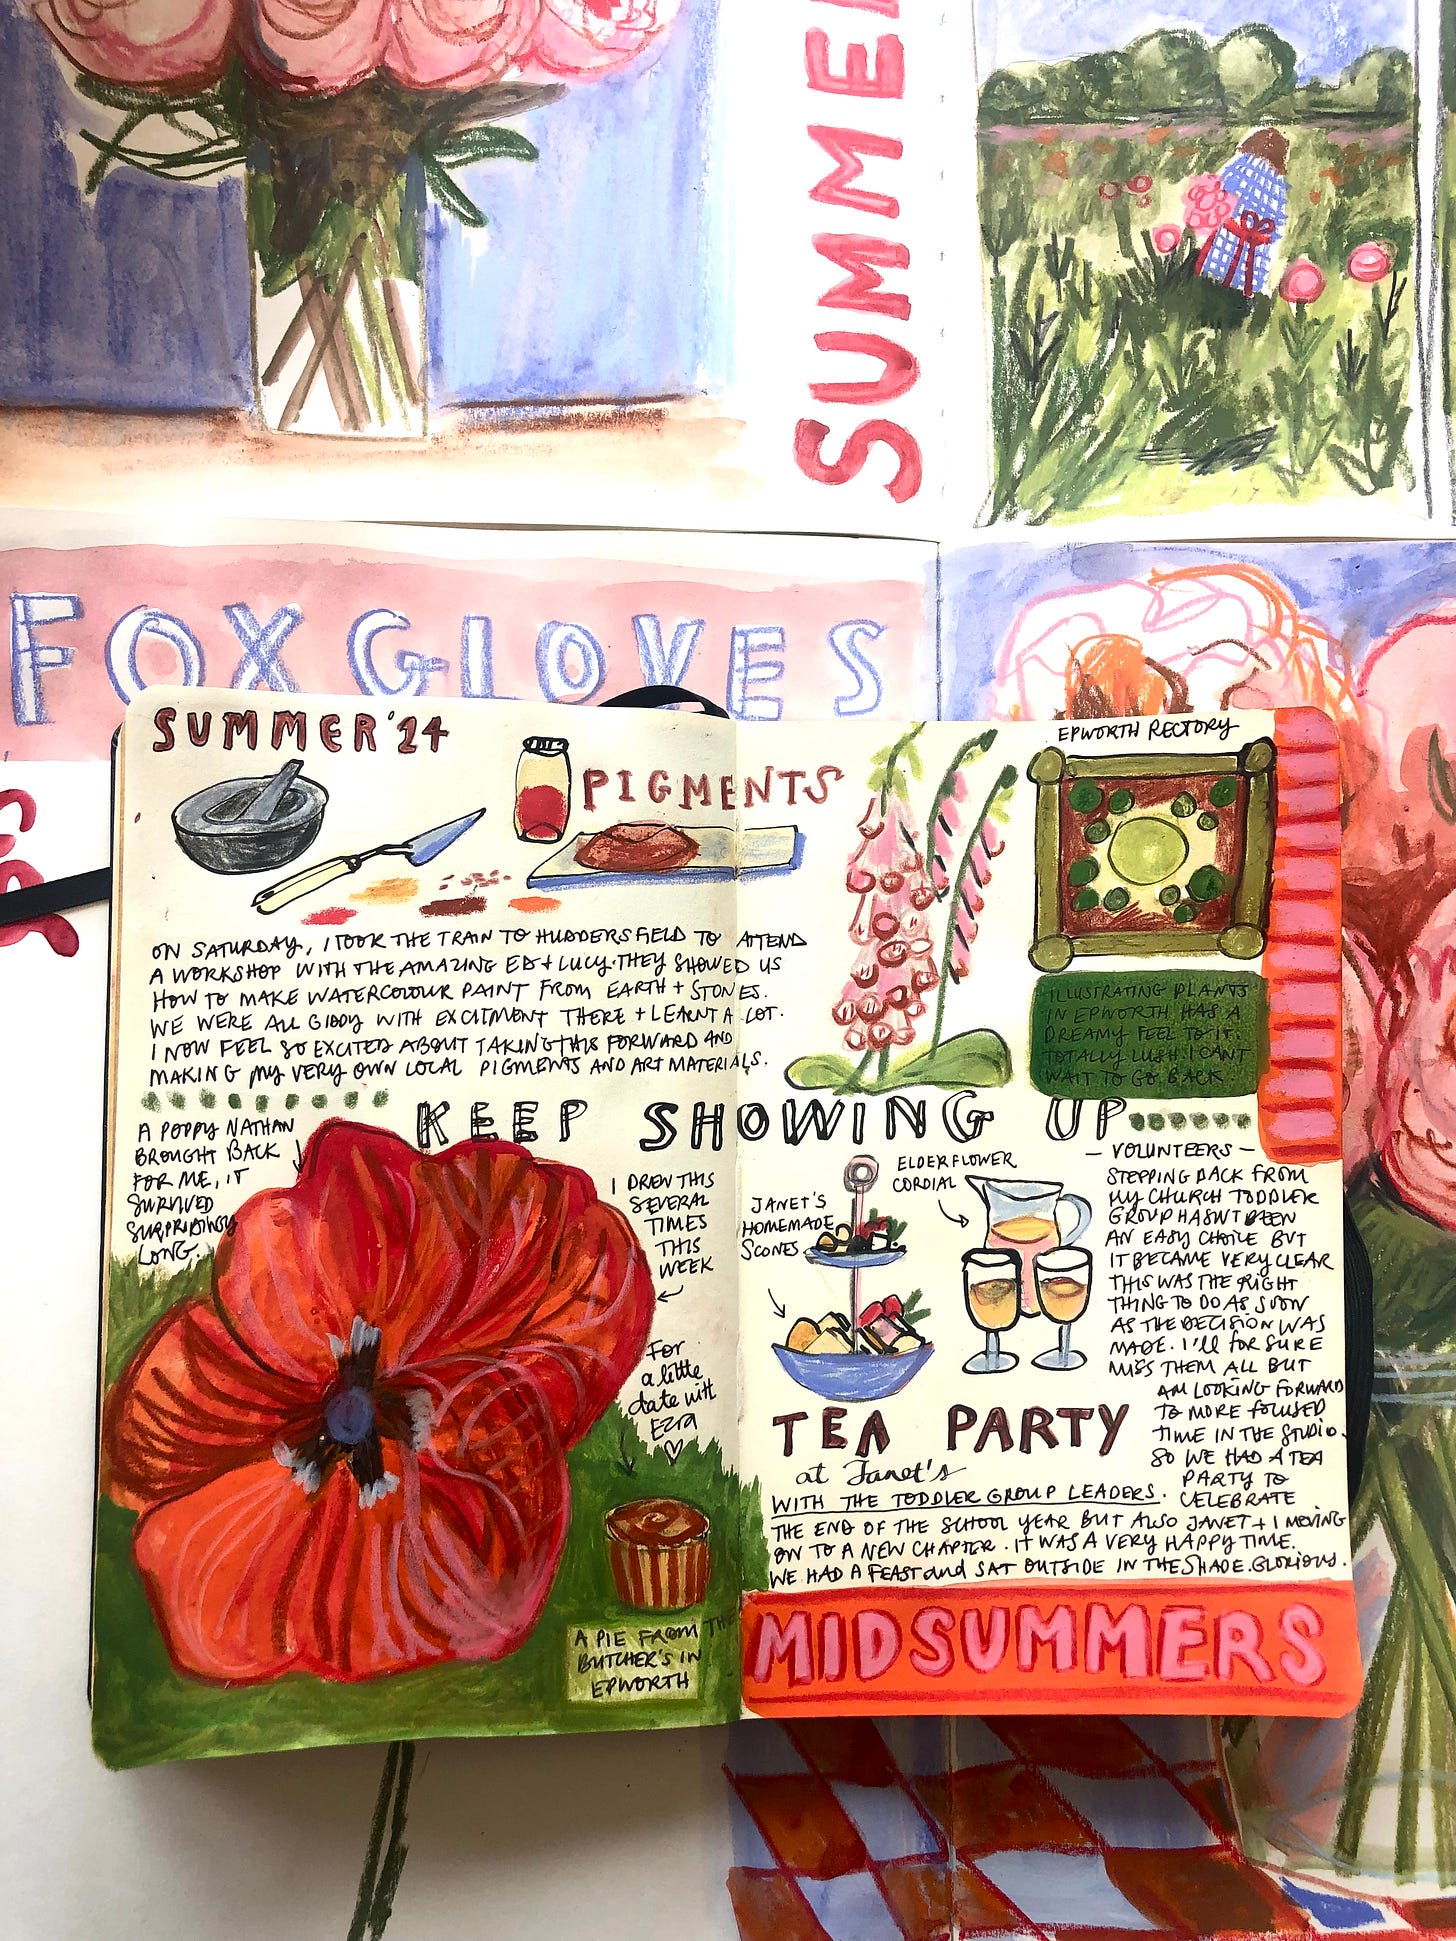 SUMMER
FOXGLOVES
SUMMER '24
PIGMENTS
ON SATURDAY, I TOOK THE TRAIN TO HUDDERSFIELD TO ATTEND
A WORKSHOP WITH THE AMAZING ED + LUCY. THEY SHOWED US
HOW TO MAKE WATERCOLOUR PAINT FROM EARTH + STONES.
WE WERE ALL GIDDY WITH EXCITMENT THERE + LEARNT A LOT.
I NOW FEEL SO EXCITED ABOUT TAKING THIS FORWARD AND
MAKING MY VERY OWN LOCAL PIGMENTS AND ART MATERIALS.
EPWORTH RECTORY
ILLUSTRATING PLANTS
IN EPWORTH HAS A
DREAMY FEEL TO IT.
TOTALLY LUSH. I CANT
WAIT TO GO BACK.
KEEP SHOWING UP
A POPPY NATHAN
BROUGHT BACK
FOR ME, IT
SURVIVED
SURPRISINGLY
LONG.
I DREW THIS
SEVERAL
TIMES
THIS
WEEK
For
a little
date with
Ezra
A PIE FROM THE
BUTCHER'S IN
EPWORTH
JANET'S
HOMEMADE
SCONES
ELDERFLOWER
CORDIAL
- VOLUNTEERS -
STEPPING BACK FROM
MY CHURCH TODDLER
GROUP HASN'T BEEN
AN EASY CHOICE BUT
IT BECAME VERY CLEAR
THIS WAS THE RIGHT
THING TO DO AS SOON
AS THE DECISION WAS
MADE. I'll FOR SURE
MISS THEM ALL BUT
AM LOOKING FORWARD
TO MORE FOCUSED
TIME IN THE STUDIO.
SO WE HAD A TEA
PARTY TO
CELEBRATE
TEA PARTY
at Janet's
WITH THE TODDLER GROUP LEADERS.
THE END OF THE SCHOOL YEAR BUT ALSO JANET + I MOVING
ON TO A NEW CHAPTER. IT WAS A VERY HAPPY TIME.
WE HAD A FEAST and SAT OUTSIDE IN THE SHADE. GLORIOUS.
MIDSUMMERS